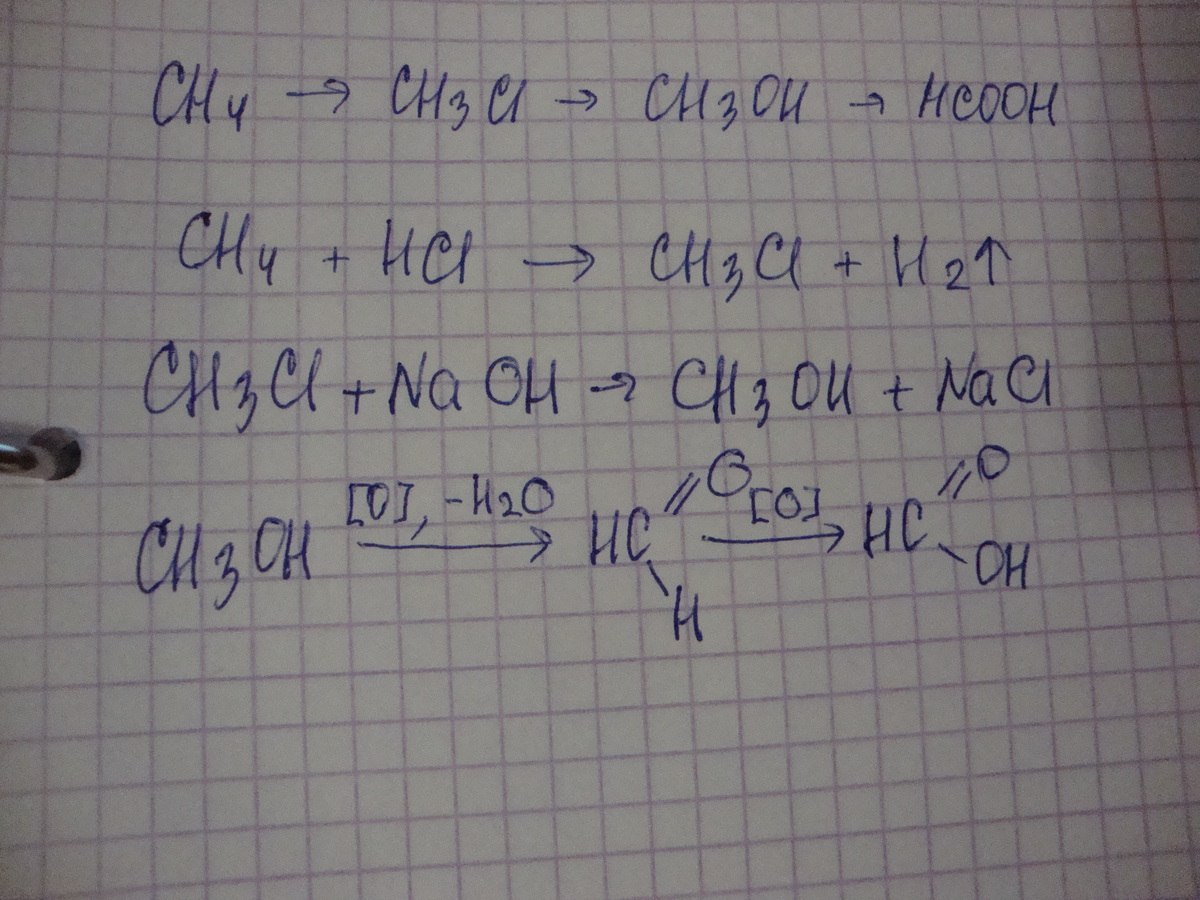 CH4 → CH3Cl → CH3OH → HCOOH
CH4 + HCl → CH3Cl + H2↑
CH3Cl + NaOH → CH3OH + NaCl
CH3OH [O], -H2O → HC =O -H [O] → HC =O -OH